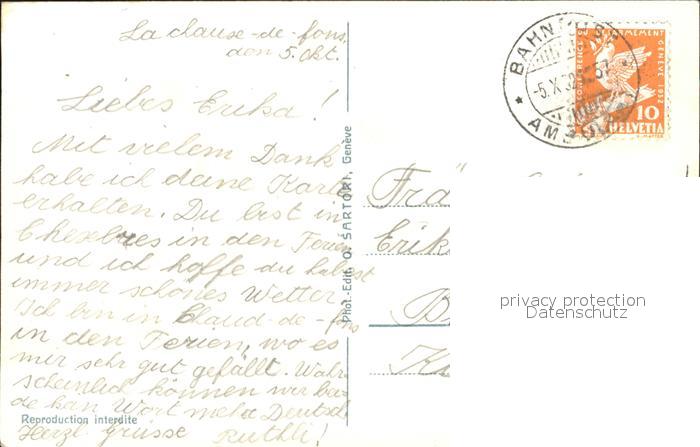 La chause-de-fons
den 5. Okt.
Liebes Erika!
Mit vielem Dank
habe ich deine Karte
erhalten. Du bist in
Chexbres in den Ferien
und ich hoffe du habest
immer schönes Wetter.
Ich bin in Chaud-de-fons
in den Ferien, wo es
mir sehr gut gefällt. Wahr
scheinlich können wir bei
de kan Wort mehr Deutsch
Herzl. Grüsse Ruthli!
Reproduction interdite
Phot.-Edit. O. SARTORI, Genève
Frä
Erik
B
K
BAHNPOST
-5.X.32
AMBUL
CONFERENCE DU DESARMEMENT GENÈVE 1932
10
HELVETIA
privacy protection
Datenschutz